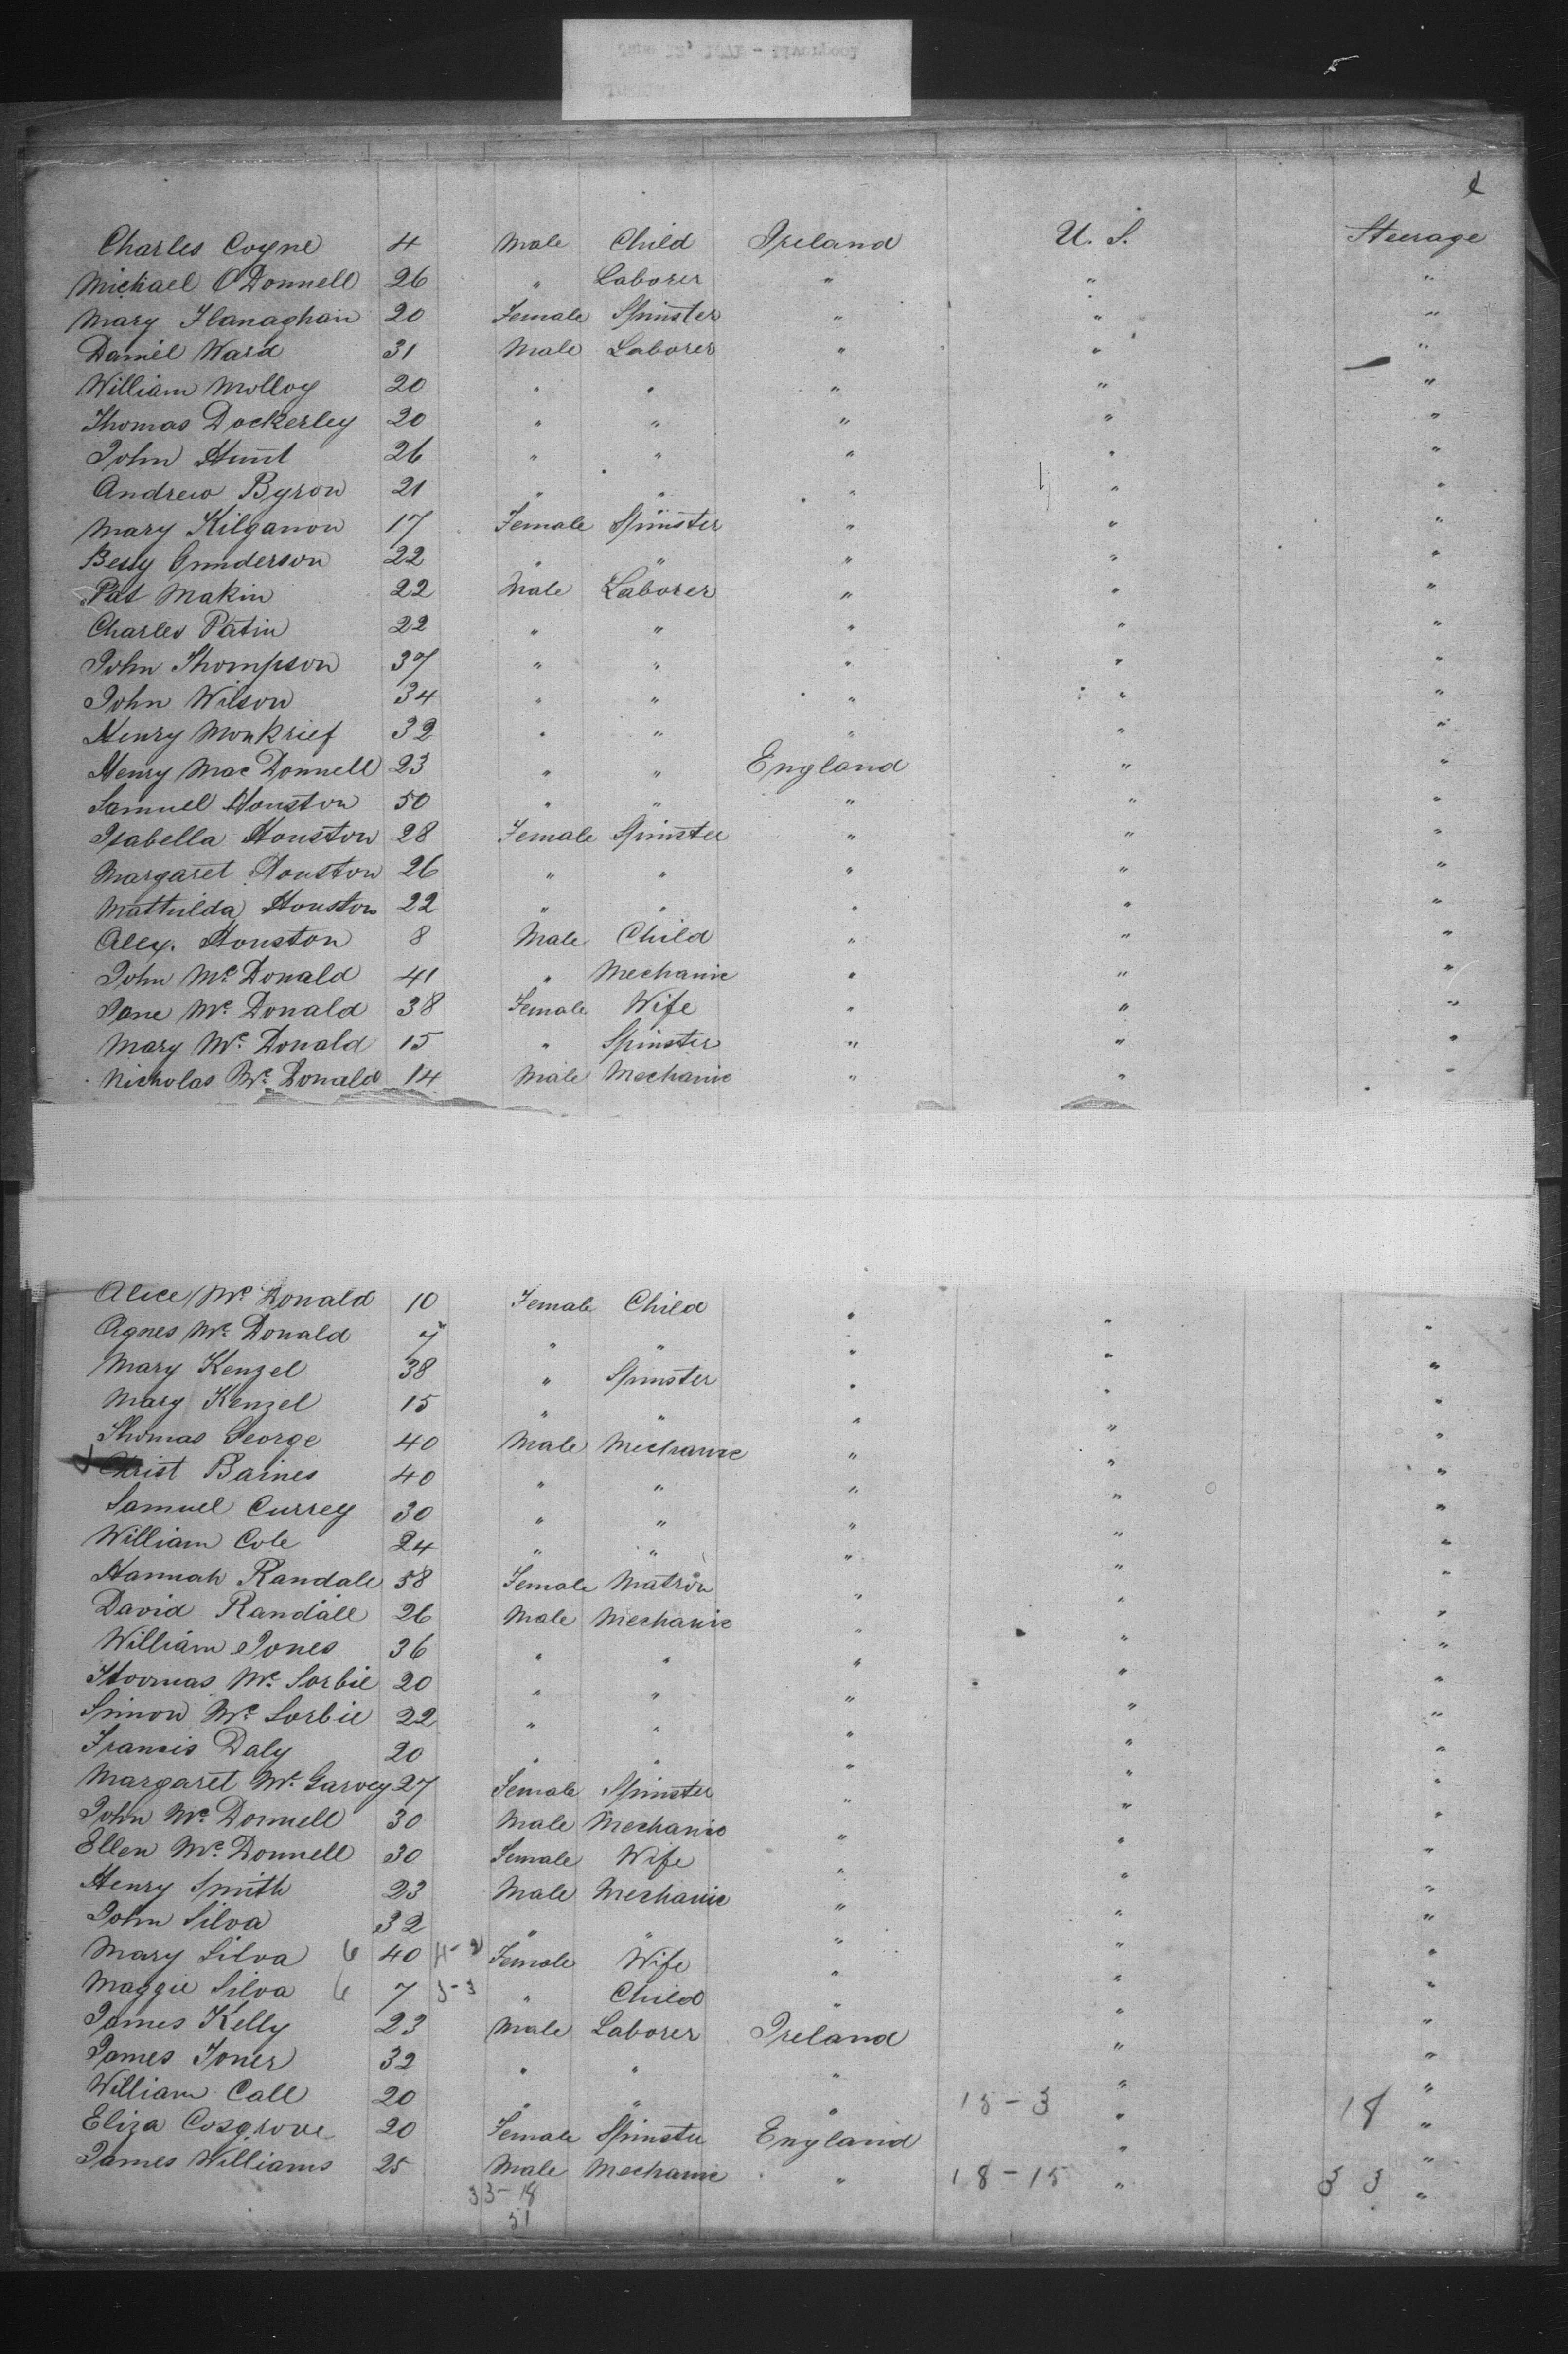 Charles Coyne 4 Male Child Ireland U. S. Steerage
Michael O'Donnell 26 " Laborer " " "
Mary Flanaghan 20 Female Spinster " " "
Daniel Ward 31 Male Laborer " " "
William Molloy 20 " " " " "
Thomas Dockerley 20 " " " " "
John Hunt 26 " " " " "
Andrew Byron 21 " " " " "
Mary Kilganon 17 Female Spinster " " "
Bessy Gunderson 22 " " " " "
Pat Makin 22 Male Laborer " " "
Charles Patin 22 " " " " "
John Thompson 37 " " " " "
John Wilson 34 " " " " "
Henry Monkrief 32 " " " " "
Henry Mac Donnell 23 " " England " "
Samuel Houston 50 " " " " "
Isabella Houston 28 Female Spinster " " "
Margaret Houston 26 " " " " "
Mathilda Houston 22 " " " " "
Alex. Houston 8 Male Child " " "
John Mc Donald 41 " Mechanic " " "
Jane Mc Donald 38 Female Wife " " "
Mary Mc Donald 15 " Spinster " " "
Nicholas Mc Donald 14 Male Mechanic " " "
Alice Mc Donald 10 Female Child " " "
Agnes Mc Donald 7 " " " " "
Mary Kenzel 38 " Spinster " " "
Mary Kenzel 15 " " " " "
Thomas George 40 Male Mechanic " " "
Christ Baines 40 " " " " "
Samuel Currey 30 " " " " "
William Cole 24 " " " " "
Hannah Randale 58 Female Matron " " "
David Randall 26 Male Mechanic " " "
William Jones 36 " " " " "
Thomas Mc Sorbie 20 " " " " "
Simon Mc Sorbie 22 " " " " "
Francis Daly 20 " " " " "
Margaret Mc Garvey 27 Female Spinster " " "
John Mc Donnell 30 Male Mechanic " " "
Ellen Mc Donnell 30 Female Wife " " "
Henry Smith 23 Male Mechanic " " "
John Silva 32 " " " " "
Mary Silva 6 40 4-2 Female Wife " " "
Maggie Silva 6 7 3-3 " Child " " "
James Kelly 23 Male Laborer Ireland " "
James Toner 32 " " " " "
William Call 20 " " " 15-3 " 18 "
Eliza Cosgrove 20 Female Spinster England " "
James Williams 25 Male Mechanic " 18-15 " 33 "
33-18
51